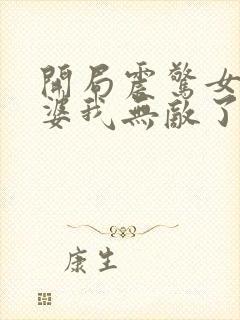 開局震驚女
婆我無敵了
康生